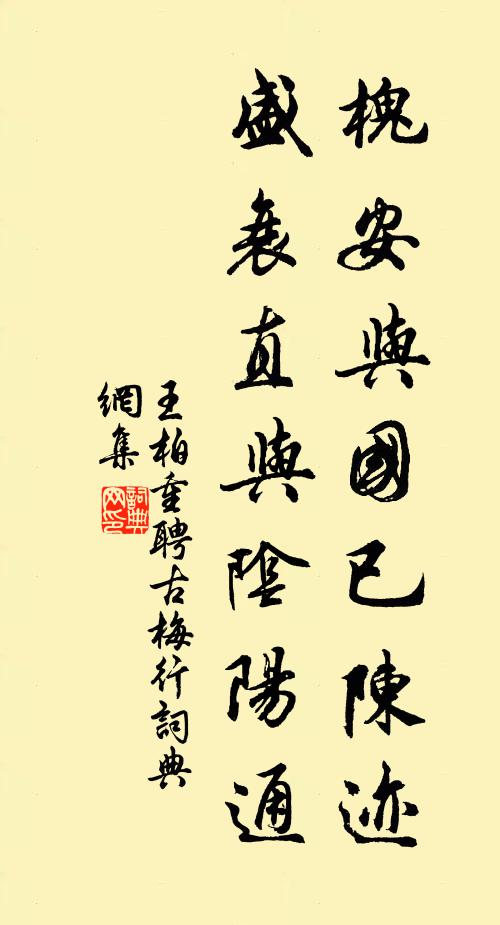 槐安與國已陳迹
盛衰直與陰陽通
王柏重聘古梅行詞典
網集
詞典
网印